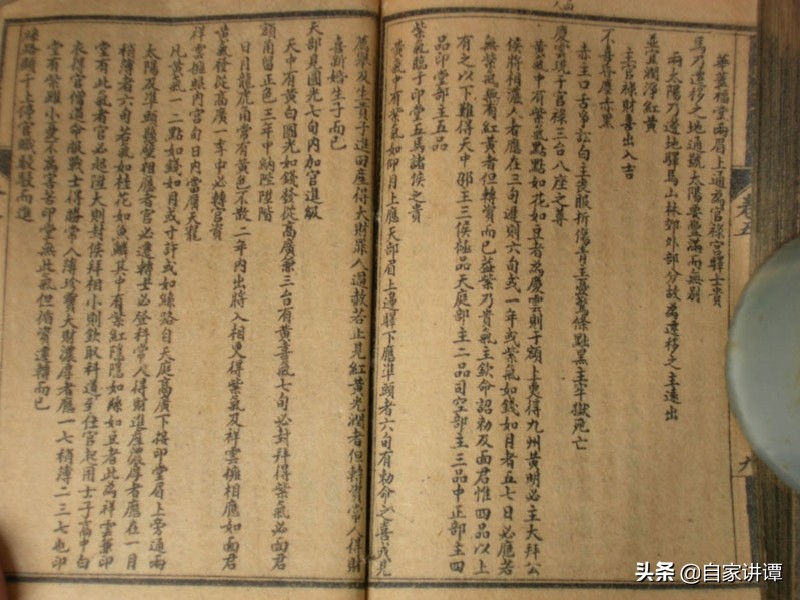 華蓋福堂兩眉上通為官祿宮驛士貴
馬乃遷移之地通號太陽要豐滿而無剋
兩太陽乃邊地驛馬山林郊外部分故為遷移之主遠出
並宜潤淨紅黃
主官祿財喜出入吉
不喜尋塵赤黑
赤主口舌爭訟白主喪服折傷青主憂驚條點黑主牢獄死亡
慶雲現于官祿三台八座之尊
黃氣中有紫氣點點如花如豆者為慶雲則于額上更得九州黃明必主大拜公
侯將相濃人者應在三旬遲則六旬或一年或紫氣如錢如月者五七日必應若
無紫氣無有紅黃者但轉資而已蓋紫乃貴氣主欽命詔勅及面君惟四品以上
有之以下難得天中部主三侯極品天庭部主二品司空部主三品中正部主四
品印堂部主五品
紫氣臨于印堂五馬諸侯之貴
黃氣中有紫氣如卯月上應天部眉上邊驛下應準頭者六旬有勅命之喜或見
薦舉及生貴子進田產得大財罪人遇赦若止見紅黃光潤者但轉資常人得財
喜新婚生子而已
天部見圓光七旬內加官進級
天中有黃白圓光如錢發從高廣兼三台有黃喜氣七旬必封拜得紫氣必面君
額角留正色三年中納陛堦階
日月龍虎角常有黃色不散二年內出將入相更得紫氣及祥雲擁相應如面君
黃氣發從高廣一季中必轉官資
祥雲擁照內宮旬日內當膺天寵
凡黃氣一二點如錢如月或寸許或如絲路自天庭高廣下接印堂眉上旁通兩
太陽及準頭懸壁相應者官必遷轉士必登科常人得財進產濃厚者應在一月
稍薄者六旬若氣如桂花如魚鱗其中有紫紅隱隱如絲如豆者此為祥雲兼印
堂有此氣者官必超陞大則封侯拜相小則欽取科道至住官起用士子高中白
衣得官僧道命服戰士得勝常人獲珍寶大財濃厚者應一七稍薄二三七色印
堂有紫雖小疾不為害若印堂無此氣但循資遷轉而已
絲路顯于上停官職駸駸而進
卷五
九
头条 @自家讲谭